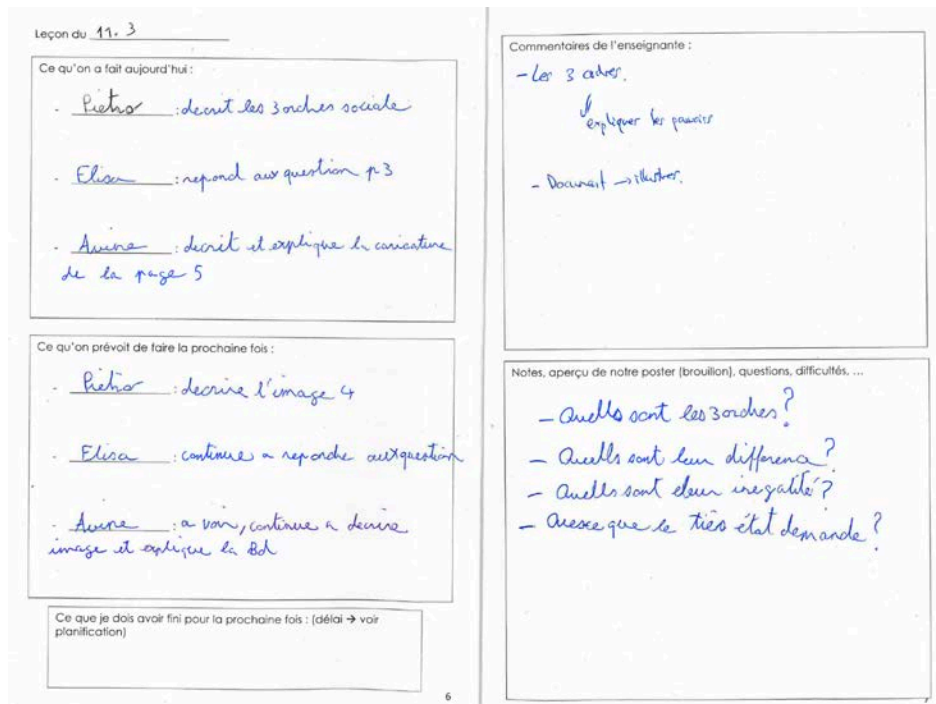 Leçon du 11. 3
Ce qu'on a fait aujourd'hui :
- Pietro : decrit les 3 ordres sociale
- Elisa : repond aux question p 3
- Avine : decrit et explique la caricature
de la page 5
Ce qu'on prévoit de faire la prochaine fois :
- Pietro : decrire l'image 4
- Elisa : continue a repondre aux question
- Avine : a voir, continue a decrire
image et explique la Bd
Ce que je dois avoir fini pour la prochaine fois : (délai → voir
planification)
6
Commentaires de l'enseignante :
- Les 3 ordres.
expliquer les pouvoirs
- Document → illustrer.
Notes, aperçu de notre poster (brouillon), questions, difficultés, ...
- Quells sont les 3 ordres ?
- Quells sont leur differenc ?
- Quells sont eleur inegalité ?
- Quesce que le tiers état demande ?